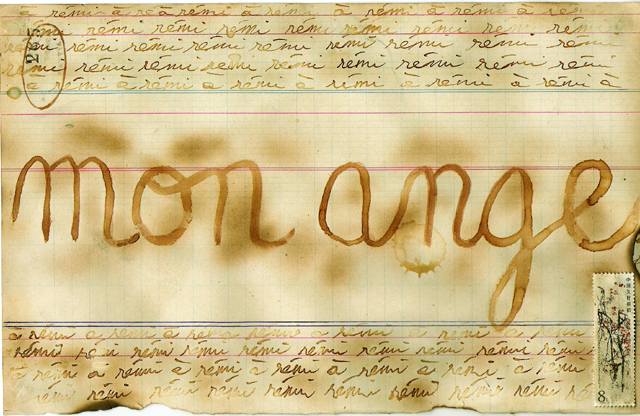 à rémi à re à rémi à rémi à rémi à rémi à rémi
rémi rémi rémi rémi rémi rémi rémi rémi
rémi rémi rémi rémi rémi rémi rémi rémi
rémi rémi rémi rémi rémi rémi rémi rémi
à rémi à rémi à rémi à rémi à rémi à rémi à
mon ange
à rémi à rémi à rémi rémi à rémi rémi à rémi
rémi rémi rémi rémi rémi rémi rémi rémi rémi
à rémi à rémi à rémi à rémi à rémi à rémi
rémi rémi rémi rémi rémi rémi rémi rémi
8